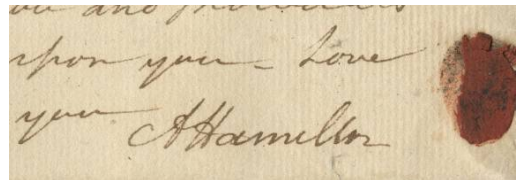 and
upon you – Love
you
AHamilton